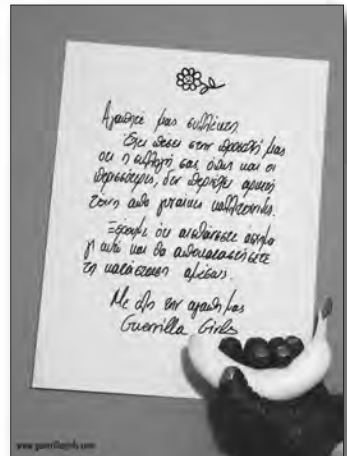 Αγαπητέ μας συλλέκτη
Έχει πέσει στην προσοχή μας
ότι η συλλογή σας, όπως και οι
περισσότερες, δεν περιέχει αρκετή
τέχνη από γυναίκες καλλιτέχνιδες.
Ξέρουμε ότι αισθάνεστε άσχημα
γι αυτό και θα αποκαταστήσετε
τη κατάσταση αμέσως.
Με όλη την αγάπη μας
Guerrilla Girls
www.guerrillagirls.com